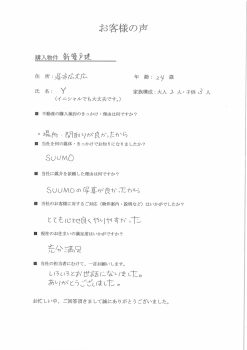 お客様の声
購入物件 新築戸建
住 所：
年 齢：24 歳
氏 名： Y
家族構成：大人 2 人・子供 3 人
（イニシャルでも大丈夫です。）
■ 不動産の購入動機のきっかけ・理由は何ですか？
・場所・間取りが良かったから
■ 当社を何の媒体・きっかけでお知りになりましたか？
SUUMO
■ 当社に仲介を依頼した理由は何ですか？
SUUMOの写真が良かったから
■ 当社のお客様に対するご対応（物件案内・説明など）はいかがでしたか？
とても心地良くやりやすかった
■ 現在のお住まいの満足度はいかがですか？
充分満足
■ 当社の担当者にむけて、一言お願いします。
いろいろとお世話になりました。
ありがとうございました。
お忙しい中、ご回答頂きまして誠にありがとうございました。